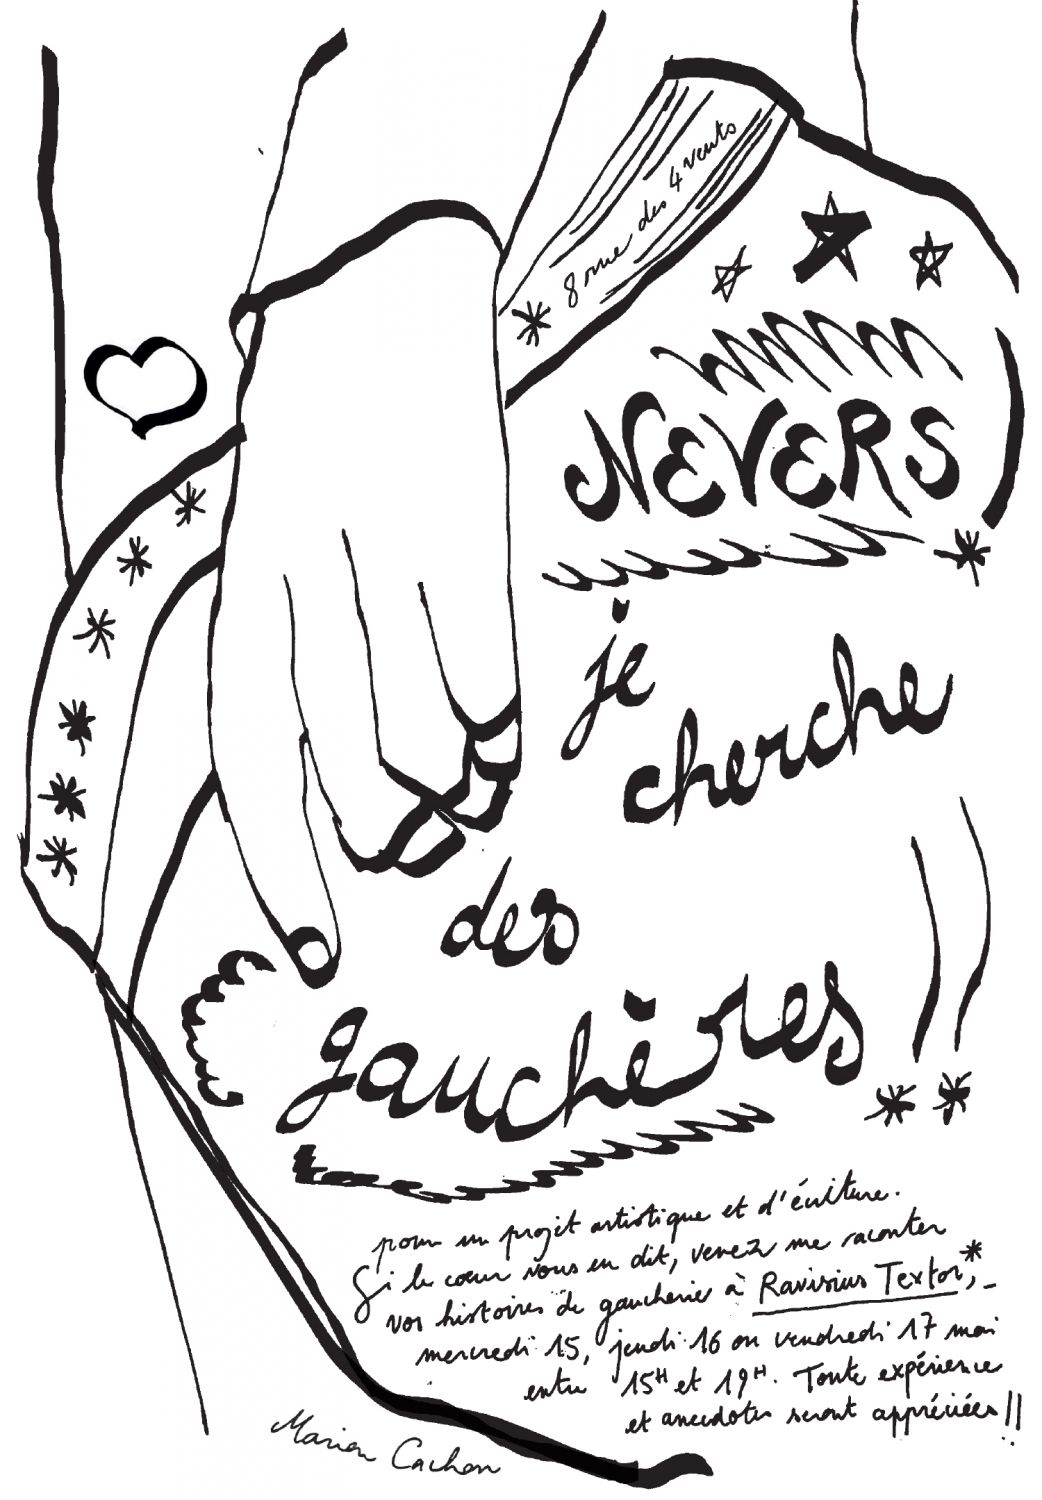 * 8 rue des 4 vents
NEVERS
*
je
cherche
des
gauchères
* *
pour un projet artistique et d'écriture.
Si le cœur vous en dit, venez me raconter
vos histoires de gaucherie à Ravisius Textor*,
mercredi 15, jeudi 16 ou vendredi 17 mai
entre 15H et 19H. Toute expérience
et anecdotes seront appréciées!!
Marion Cachon